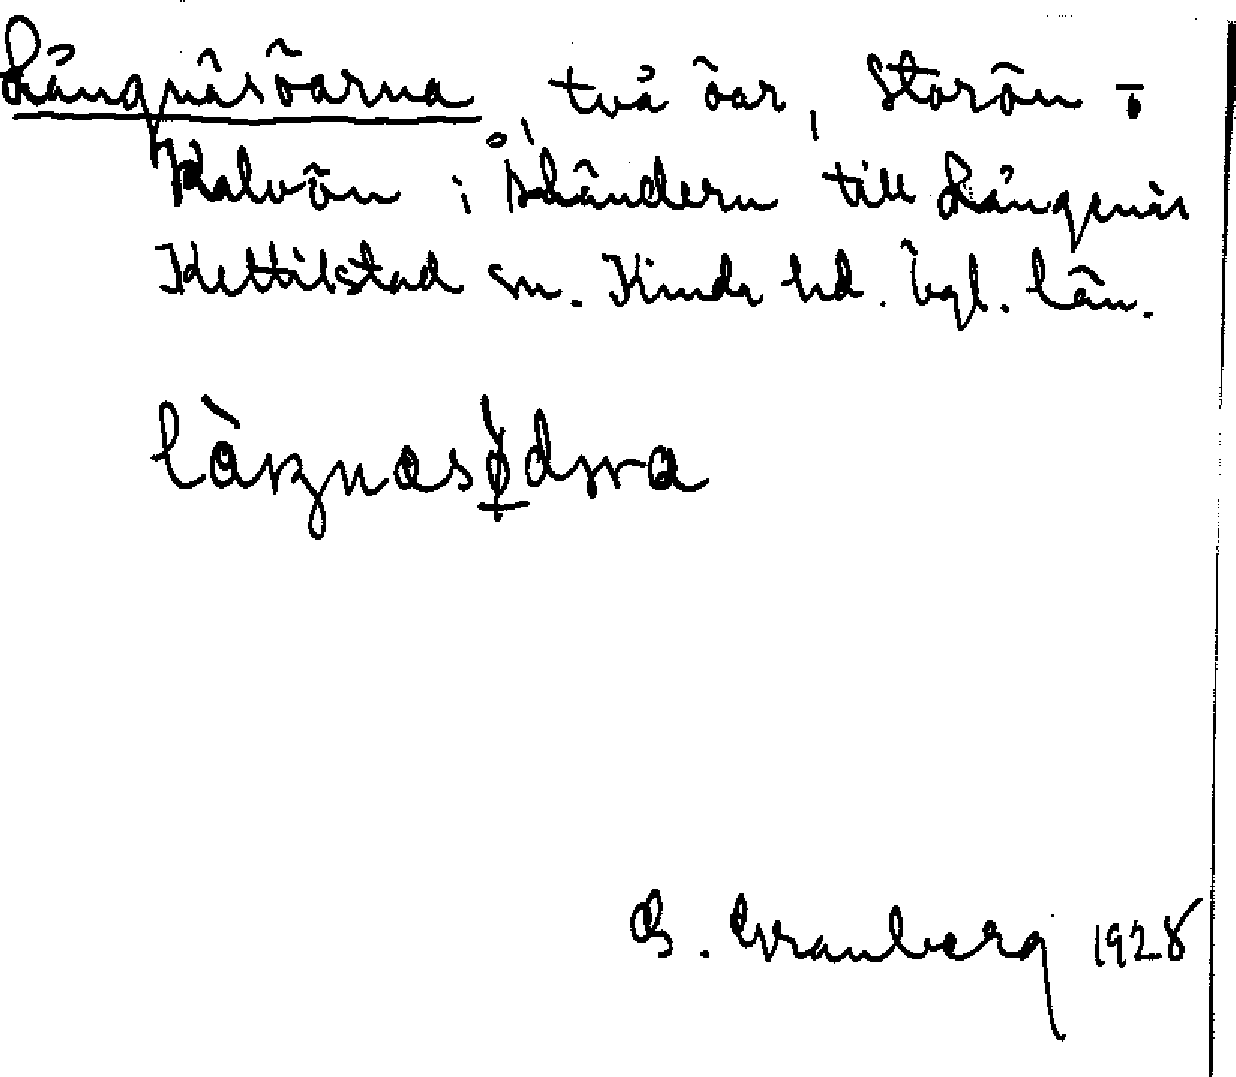 Långnäsöarna två öar, Storön o
Kalvön i Åländern till Långnäs
Kettilstad sn. Kinda hd. Ögl. län.
G. Granberg 1928